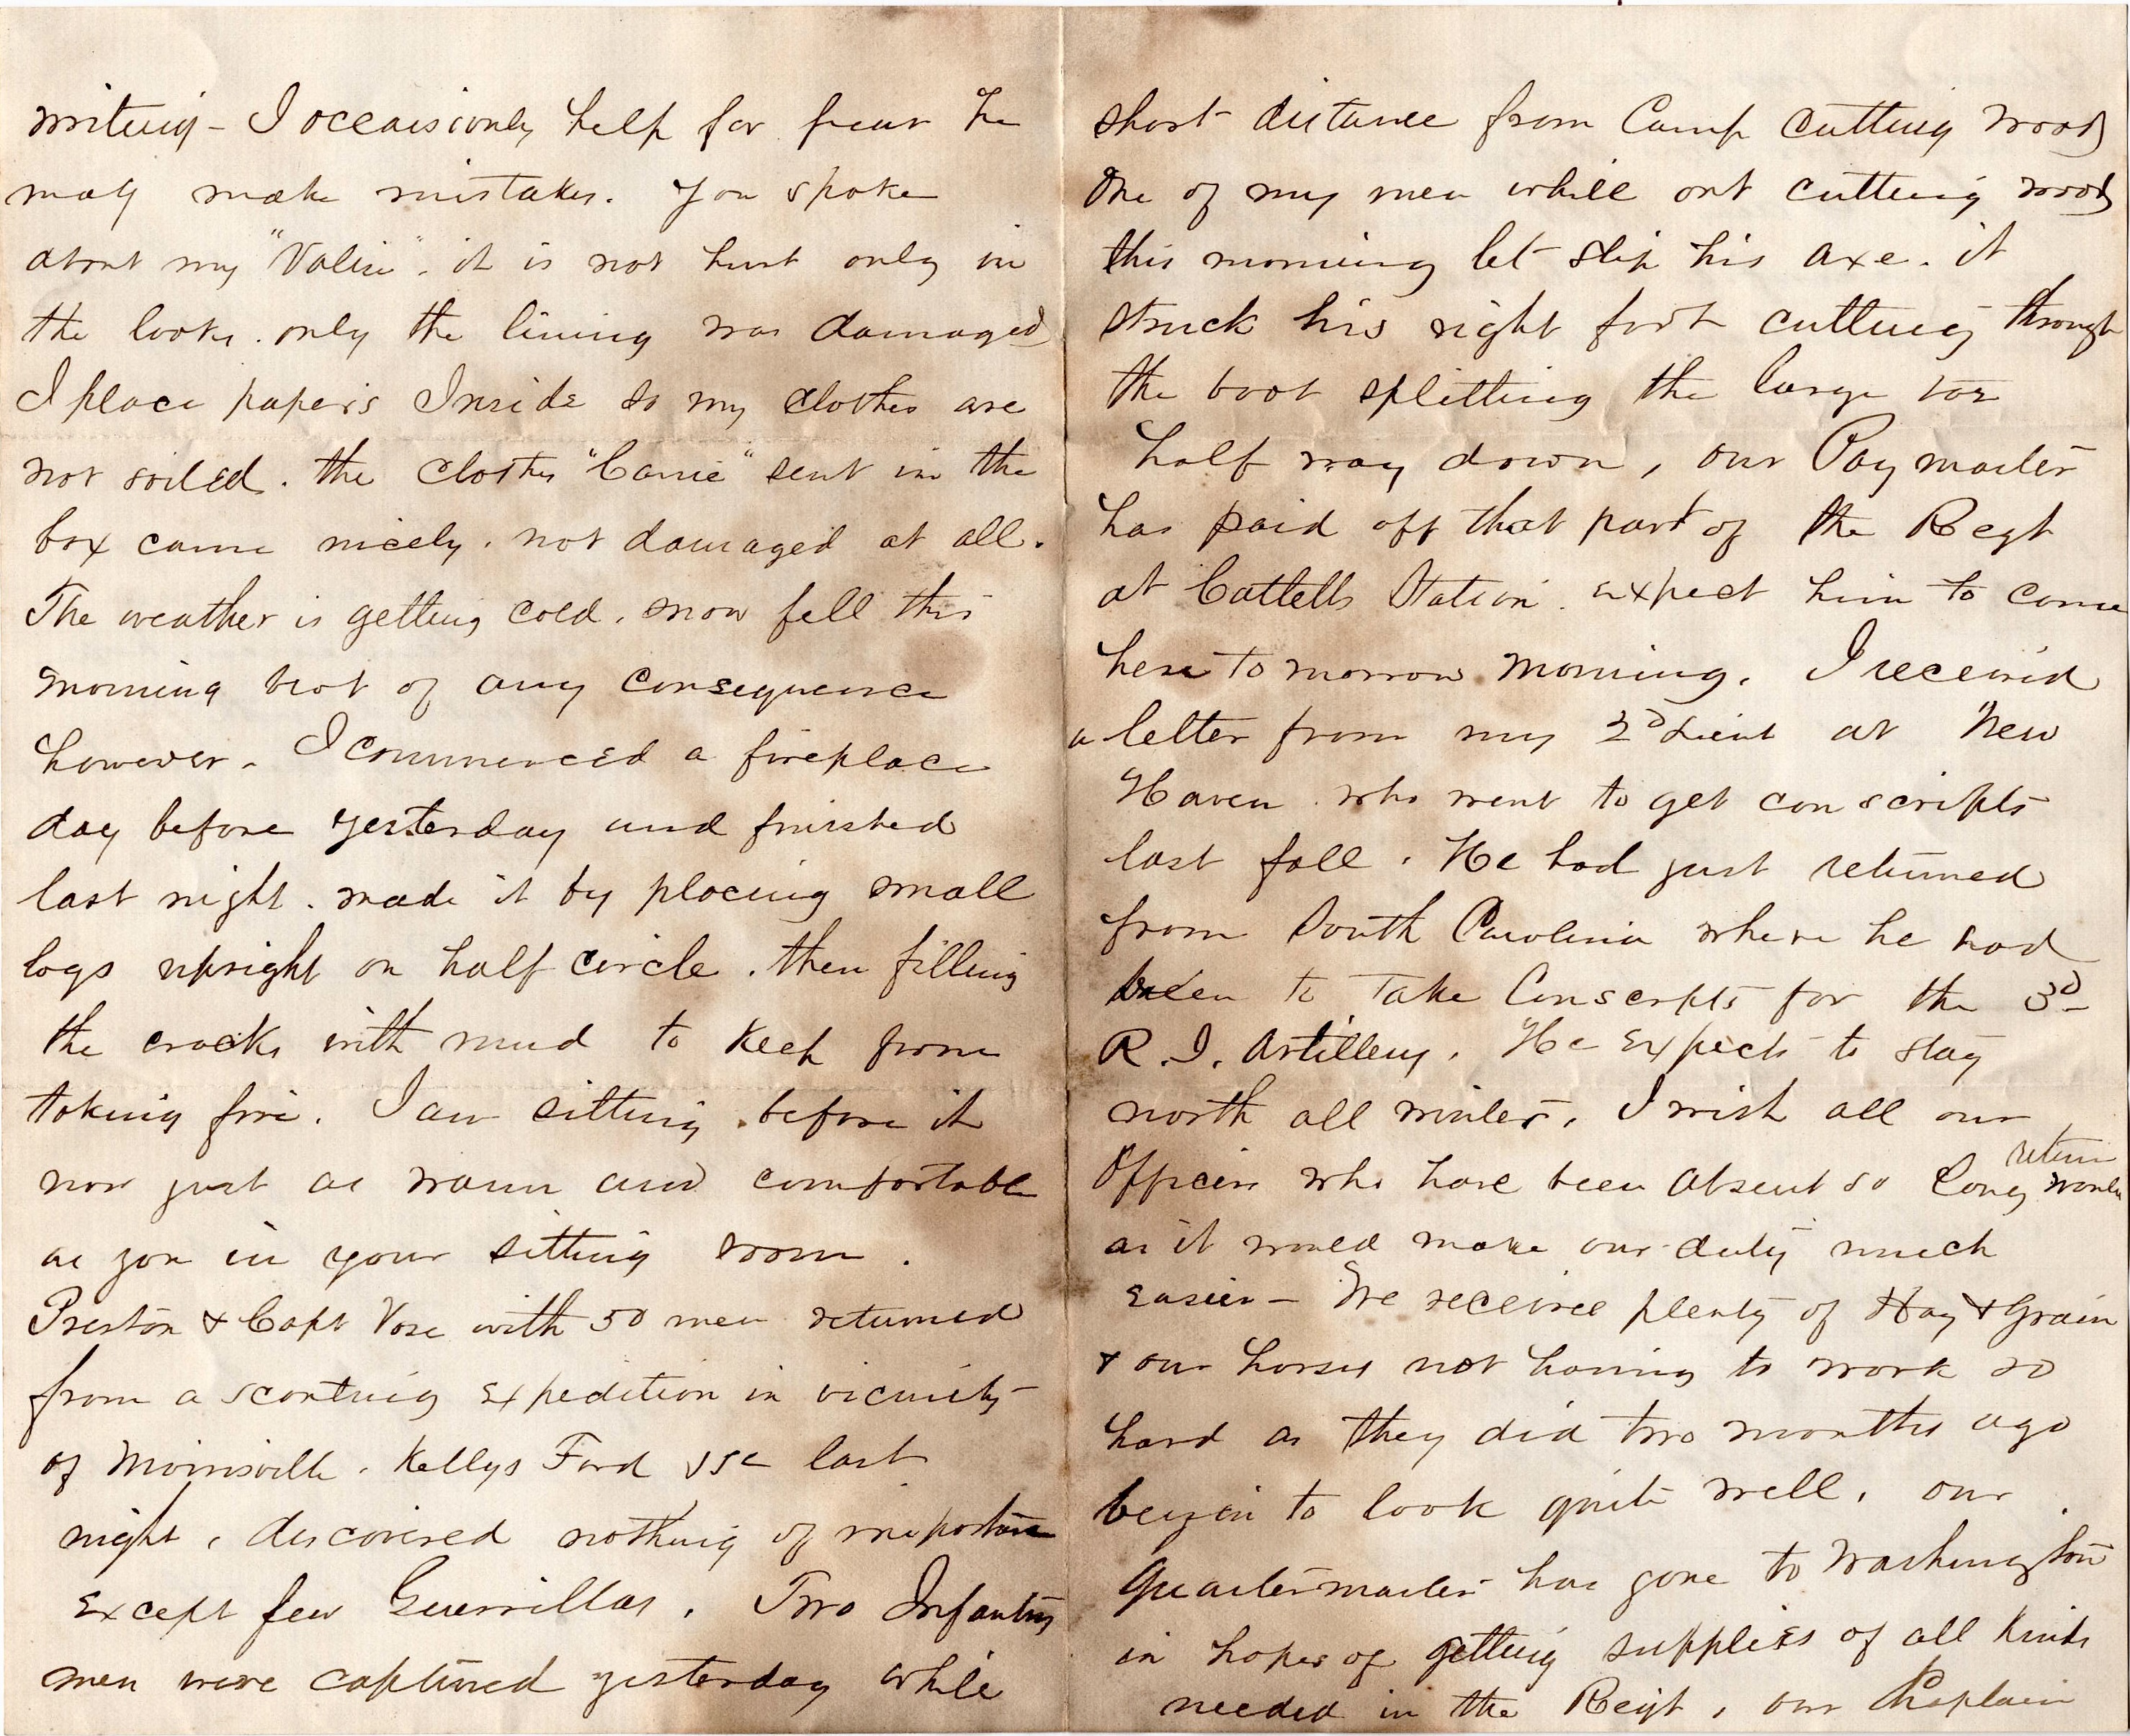 writing - I occaisionly help for fear he
may make mistakes. You spoke
about my "Valise". it is not hurt only in
the looks. only the lining was damaged
I place papers Inside so my clothes are
not soiled. the clothes "Carrie" sent in the
box came nicely. not damaged at all.
The weather is getting cold. snow fell this
morning not of any consequence
however. I commenced a fireplace
day before yesterday and finished
last night. made it by placing small
logs upright on half circle. then filling
the cracks with mud to keep from
taking fire. I am sitting before it
now just as warm and comfortable
as you in your sitting room.
Preston & Capt Vose with 50 men returned
from a scouting expedition in vicinity
of Morrisville. Kellys Ford &c last
night, discovered nothing of importance
Except few Guerrillas. Two Infantry
men were captured yesterday while
short distance from Camp cutting wood
One of my men while out cutting wood
this morning let slip his axe. it
struck his right foot cutting through
the boot splitting the large toe
half way down, our Paymaster
has paid off that part of the Regt
at Cattletts Station. expect him to come
here to morrow morning. I received
a letter from my 2D Lieut at New
Haven who went to get conscripts
last fall. He had just returned
from South Carolina where he had
been to take Conscrpts for the 3D
R.I. Artillery. He Expects to stay
north all winter. I wish all our
return
Officers who have been absent so long would
as it would make our duty much
easier - We receive plenty of Hay & Grain
& our horses not having to work so
hard as they did two months ago
begin to look quite well. our
Quartermaster has gone to Washington
in hopes of getting supplies of all kinds
needed in the Regt, our Chaplain